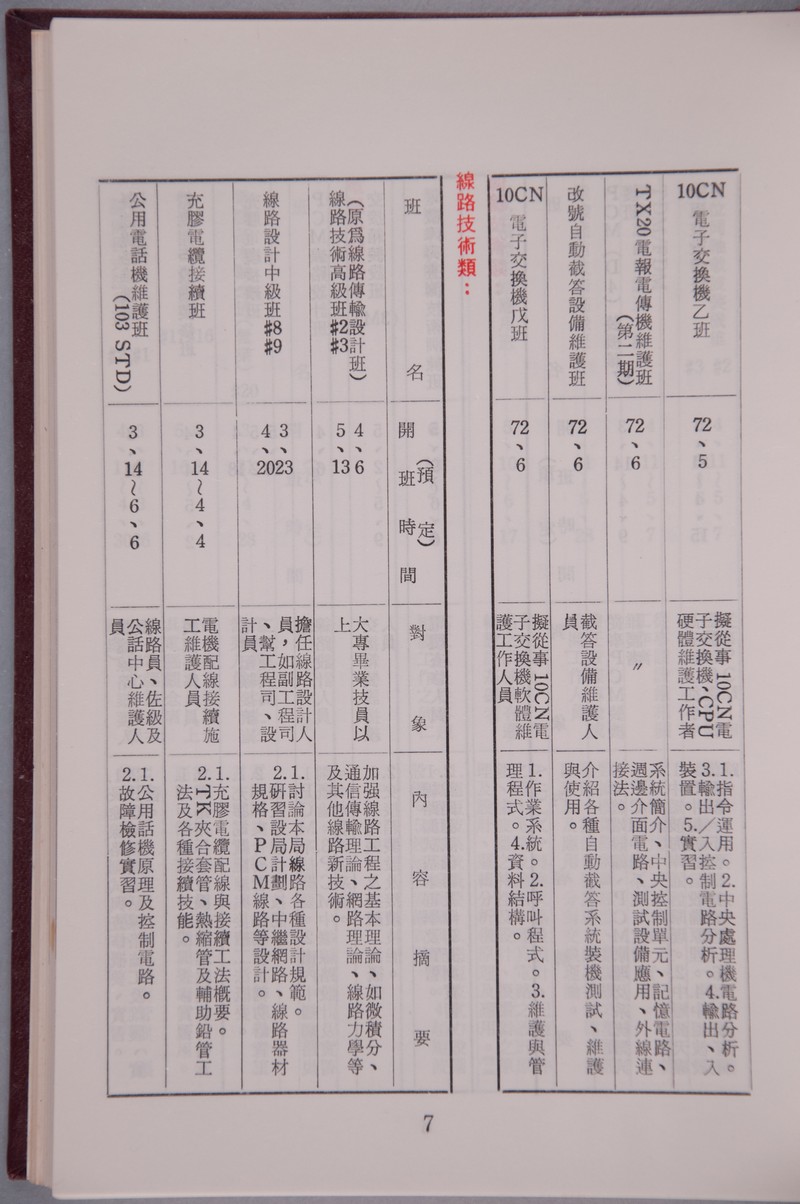 10CN電子交換機乙班
72、5
擬從事10CN電
子交換機、CPU
硬體維護工作者
1.指令運用。2.中央處理機電路分析。
3.輸出/入控制電路分析。4.輸出、入
裝置。5.實習。
TX20電報電傳機維護班
(第二期)
72、6
〃
系統簡介、中央控制單元、記憶電路、
週邊介面電路、測試設備應用、外線連
接法。
改號自動截答設備維護班
72、6
截答設備維護人
員
介紹各種自動截答系統裝機測試、維護
與使用。
10CN電子交換機戊班
72、6
擬從事10CN電
子交換機軟體維
護工作人員
1.作業系統。2.呼叫程式。3.維護與管
理程式。4.資料結構。
線路技術類：
班名
開班時間
(預定)
對象
內容摘要
(原爲線路傳輸設計班)
線路技術高級班#2#3
4、6
5、13
大專畢業技員以
上
加强線路工程之基本理論、如微積分、
通信傳輸理論、網路理論、線路力學等
及其他線路新技術。
線路設計中級班#8
#9
3、23
4、20
擔任線路設計人
員，如副工程司
、幫工程司、設
計員
1.討論本局線路各種設計規範。
2.研習設局計劃、中繼網路、線路器材
規格、PCM線路等設計。
充膠電纜接續班
3、14~4、4
電機配線接續施
工維護人員
1.充膠電纜配線與接續工法概要。
2.TK夾合套管、熱縮管及輔助鉛管工
法及各種接續技能。
公用電話機維護班
(103 STD)
3、14~6、6
線路員、佐級及
公話中心維護人
員
1.公用話機原理及控制電路。
2.故障檢修實習。
7